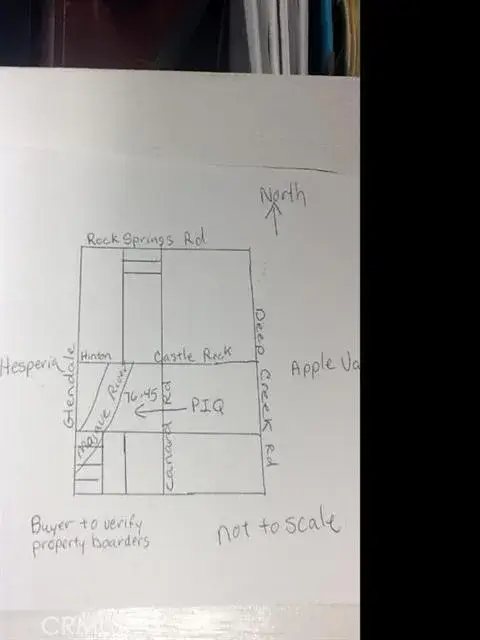 North
Rock Springs Rd
Hesperia
Glendale
Hinton
Castle Rock
Deep Creek Rd
Apple Va
Mojave River
76.45
PIQ
Canard Rd
Buyer to verify
property boarders
not to scale